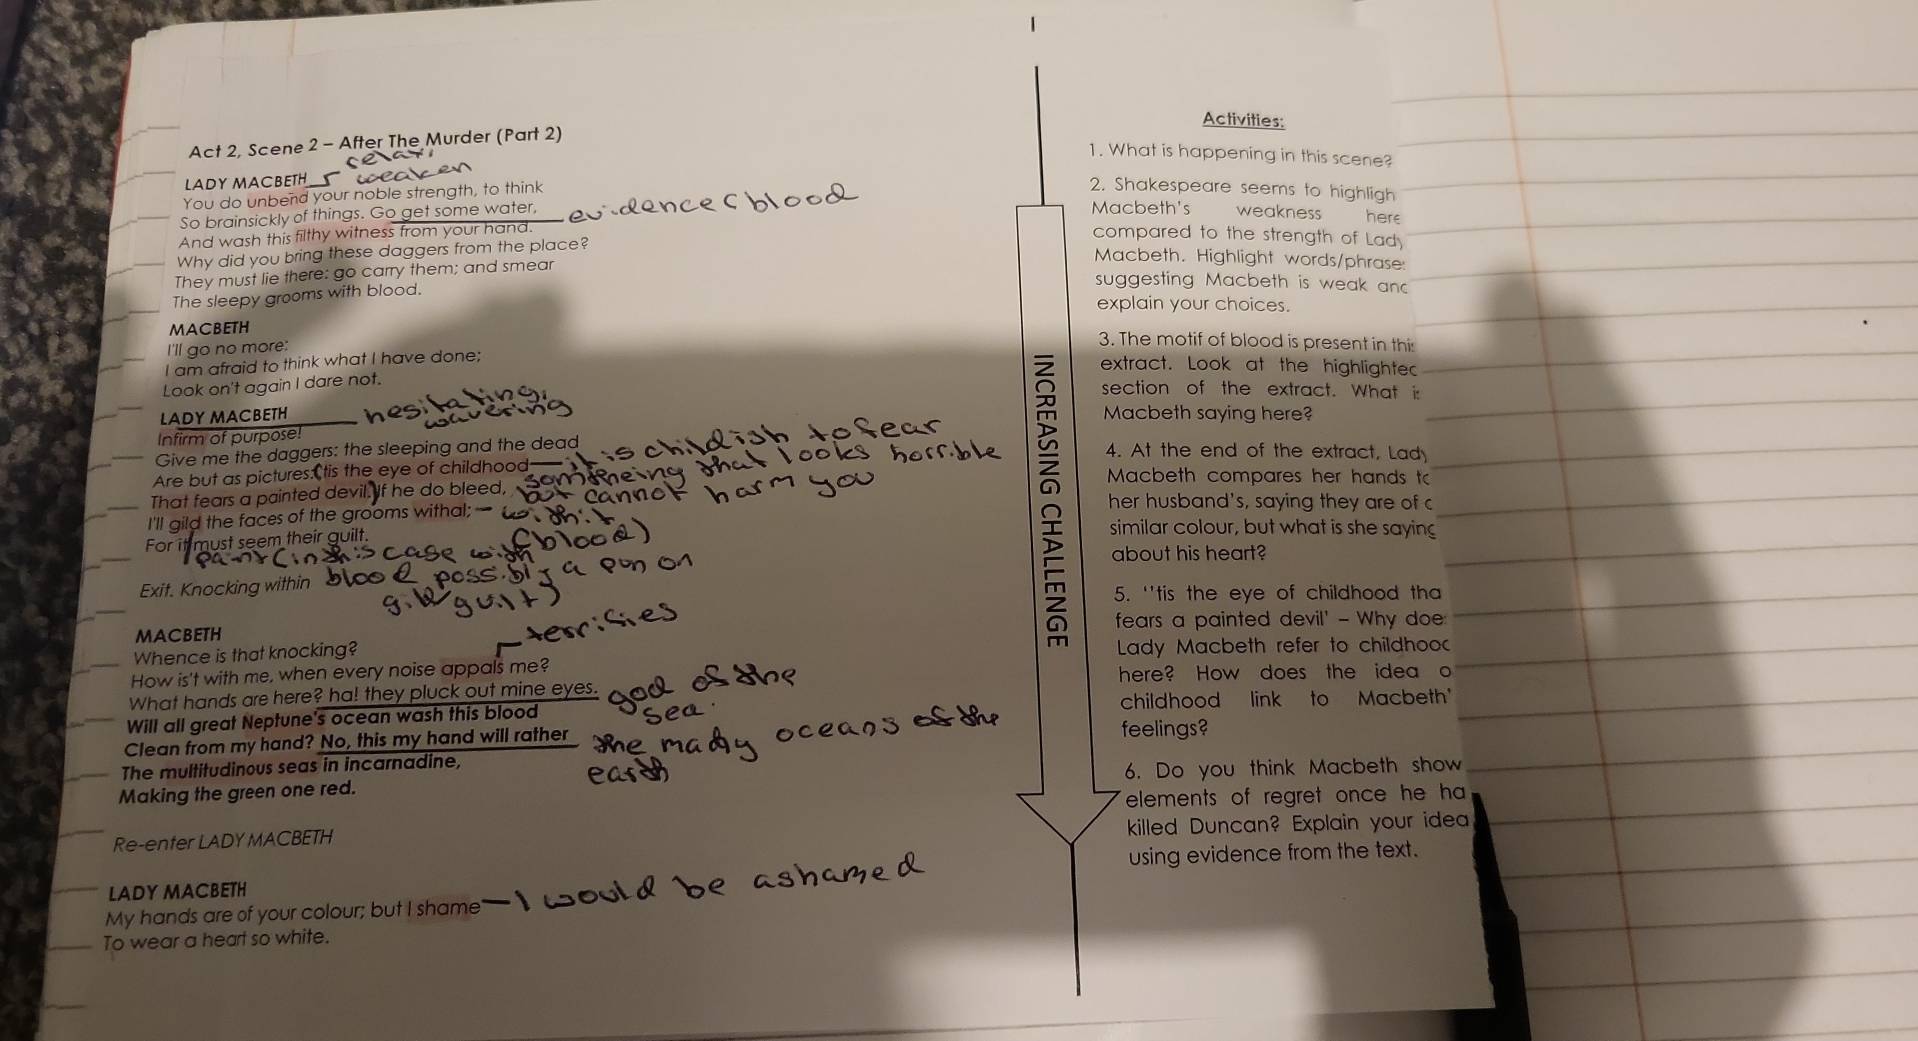 Act 2, Scene 2 – After The Murder (Part 2)
relax,
LADY MACBETH weaken
You do unbend your noble strength, to think
So brainsickly of things. Go get some water,
evidence (blood
And wash this filthy witness from your hand.
Why did you bring these daggers from the place?
They must lie there: go carry them; and smear
The sleepy grooms with blood.
MACBETH
I'll go no more:
I am afraid to think what I have done;
Look on't again I dare not.
LADY MACBETH
hesitating,
wavering
Infirm of purpose!
Give me the daggers: the sleeping and the dead
Are but as pictures: 'tis the eye of childhood
it is childish to fear
That fears a painted devil. If he do bleed,
something that looks horrible
but cannot harm you
I'll gild the faces of the grooms withal;
with it
(blood)
For it must seem their guilt.
paint (in this case with
blood possibly a pun on
gild/guilt)
Exit. Knocking within
MACBETH
Whence is that knocking?
terrifies
How is't with me, when every noise appals me?
What hands are here? ha! they pluck out mine eyes.
god of the
sea.
Will all great Neptune's ocean wash this blood
Clean from my hand? No, this my hand will rather
the many oceans of the
earth
The multitudinous seas in incarnadine,
Making the green one red.
Re-enter LADY MACBETH
LADY MACBETH
My hands are of your colour; but I shame
I would be ashamed
To wear a heart so white.
INCREASING CHALLENGE
Activities:
1. What is happening in this scene?
2. Shakespeare seems to highligh
Macbeth's weakness here
compared to the strength of Lady
Macbeth. Highlight words/phrase
suggesting Macbeth is weak and
explain your choices.
3. The motif of blood is present in this
extract. Look at the highlighted
section of the extract. What i
Macbeth saying here?
4. At the end of the extract, Lady
Macbeth compares her hands to
her husband's, saying they are of a
similar colour, but what is she saying
about his heart?
5. ''tis the eye of childhood tha
fears a painted devil' – Why doe
Lady Macbeth refer to childhood
here? How does the idea o
childhood link to Macbeth'
feelings?
6. Do you think Macbeth show
elements of regret once he ha
killed Duncan? Explain your idea
using evidence from the text.